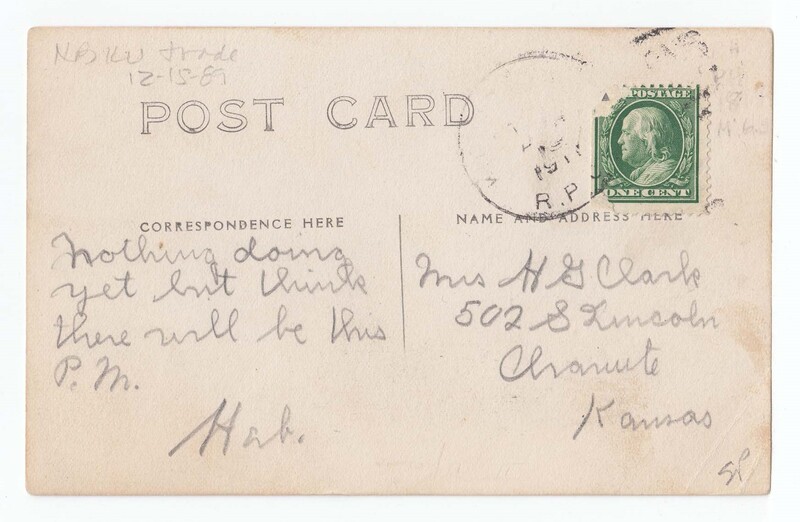 trade
12-15-89
POST CARD
POSTAGE
ONE CENT
1911
R.P.
CORRESPONDENCE HERE
NAME AND ADDRESS HERE
Nothing doing
yet but think
there will be this
P.M.
Hab.
Mrs H G Clark
502 S Lincoln
Chanute
Kansas